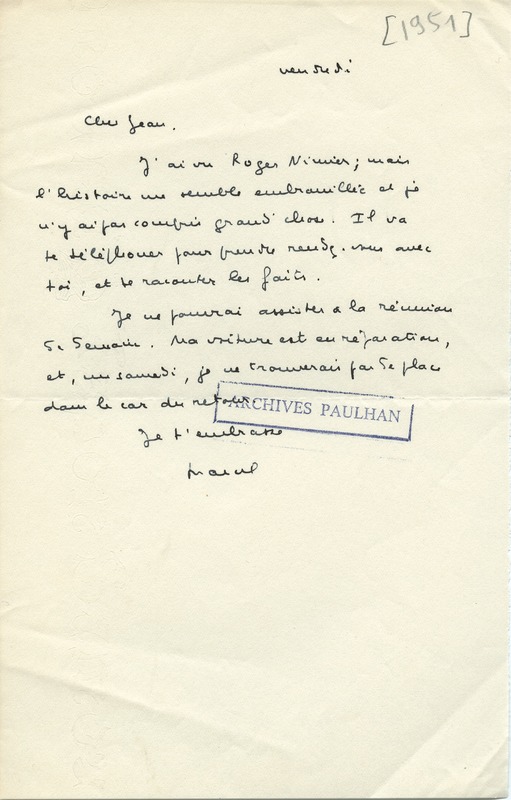 [1951]
vendredi
Cher Jean.
J'ai vu Roger Nimier ; mais
l'histoire me semble embrouillée et je
n'y ai pas compris grand'chose. Il va
te téléphoner pour prendre rendz-vous avec
toi, et te raconter les faits.
Je ne pourrai assister à la réunion
de demain. Ma voiture est en réparation,
et, un samedi, je ne trouverais pas de place
dans le car du retour.
ARCHIVES PAULHAN
Je t'embrasse
Marcel